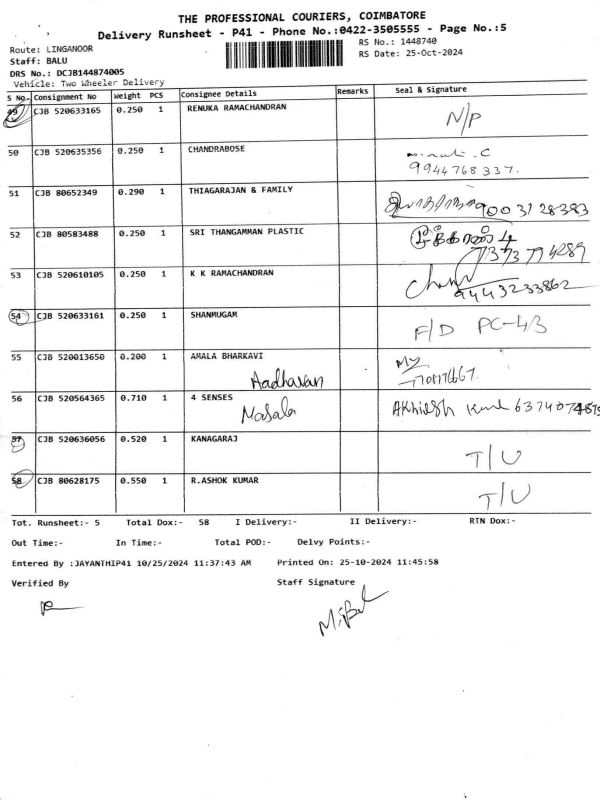 THE PROFESSIONAL COURIERS, COIMBATORE
Delivery Runsheet - P41 - Phone No.:0422-3505555 - Page No.:5
Route: LINGANOOR
RS No.: 1448740
Staff: BALU
RS Date: 25-Oct-2024
DRS No.: DCJB144874005
Vehicle: Two Wheeler Delivery
S No. Consignment No Weight PCS Consignee Details Remarks Seal & Signature
49 CJB 520633165 0.250 1 RENUKA RAMACHANDRAN N/P
50 CJB 520635356 0.250 1 CHANDRABOSE
9944768337.
51 CJB 80652349 0.290 1 THIAGARAJAN & FAMILY 9003128383
52 CJB 80583488 0.250 1 SRI THANGAMMAN PLASTIC
53 CJB 520610105 0.250 1 K K RAMACHANDRAN
9443233862
54 CJB 520633161 0.250 1 SHANMUGAM F/D PC-43
55 CJB 520013650 0.200 1 AMALA BHARKAVI
Aadhavan
56 CJB 520564365 0.710 1 4 SENSES Akhilesh
Masala
57 CJB 520636056 0.520 1 KANAGARAJ T/U
58 CJB 80628175 0.550 1 R.ASHOK KUMAR T/U
Tot. Runsheet:- 5 Total Dox:- 58 I Delivery:- II Delivery:- RTN Dox:-
Out Time:- In Time:- Total POD:- Delvy Points:-
Entered By :JAYANTHIP41 10/25/2024 11:37:43 AM Printed On: 25-10-2024 11:45:58
Verified By Staff Signature